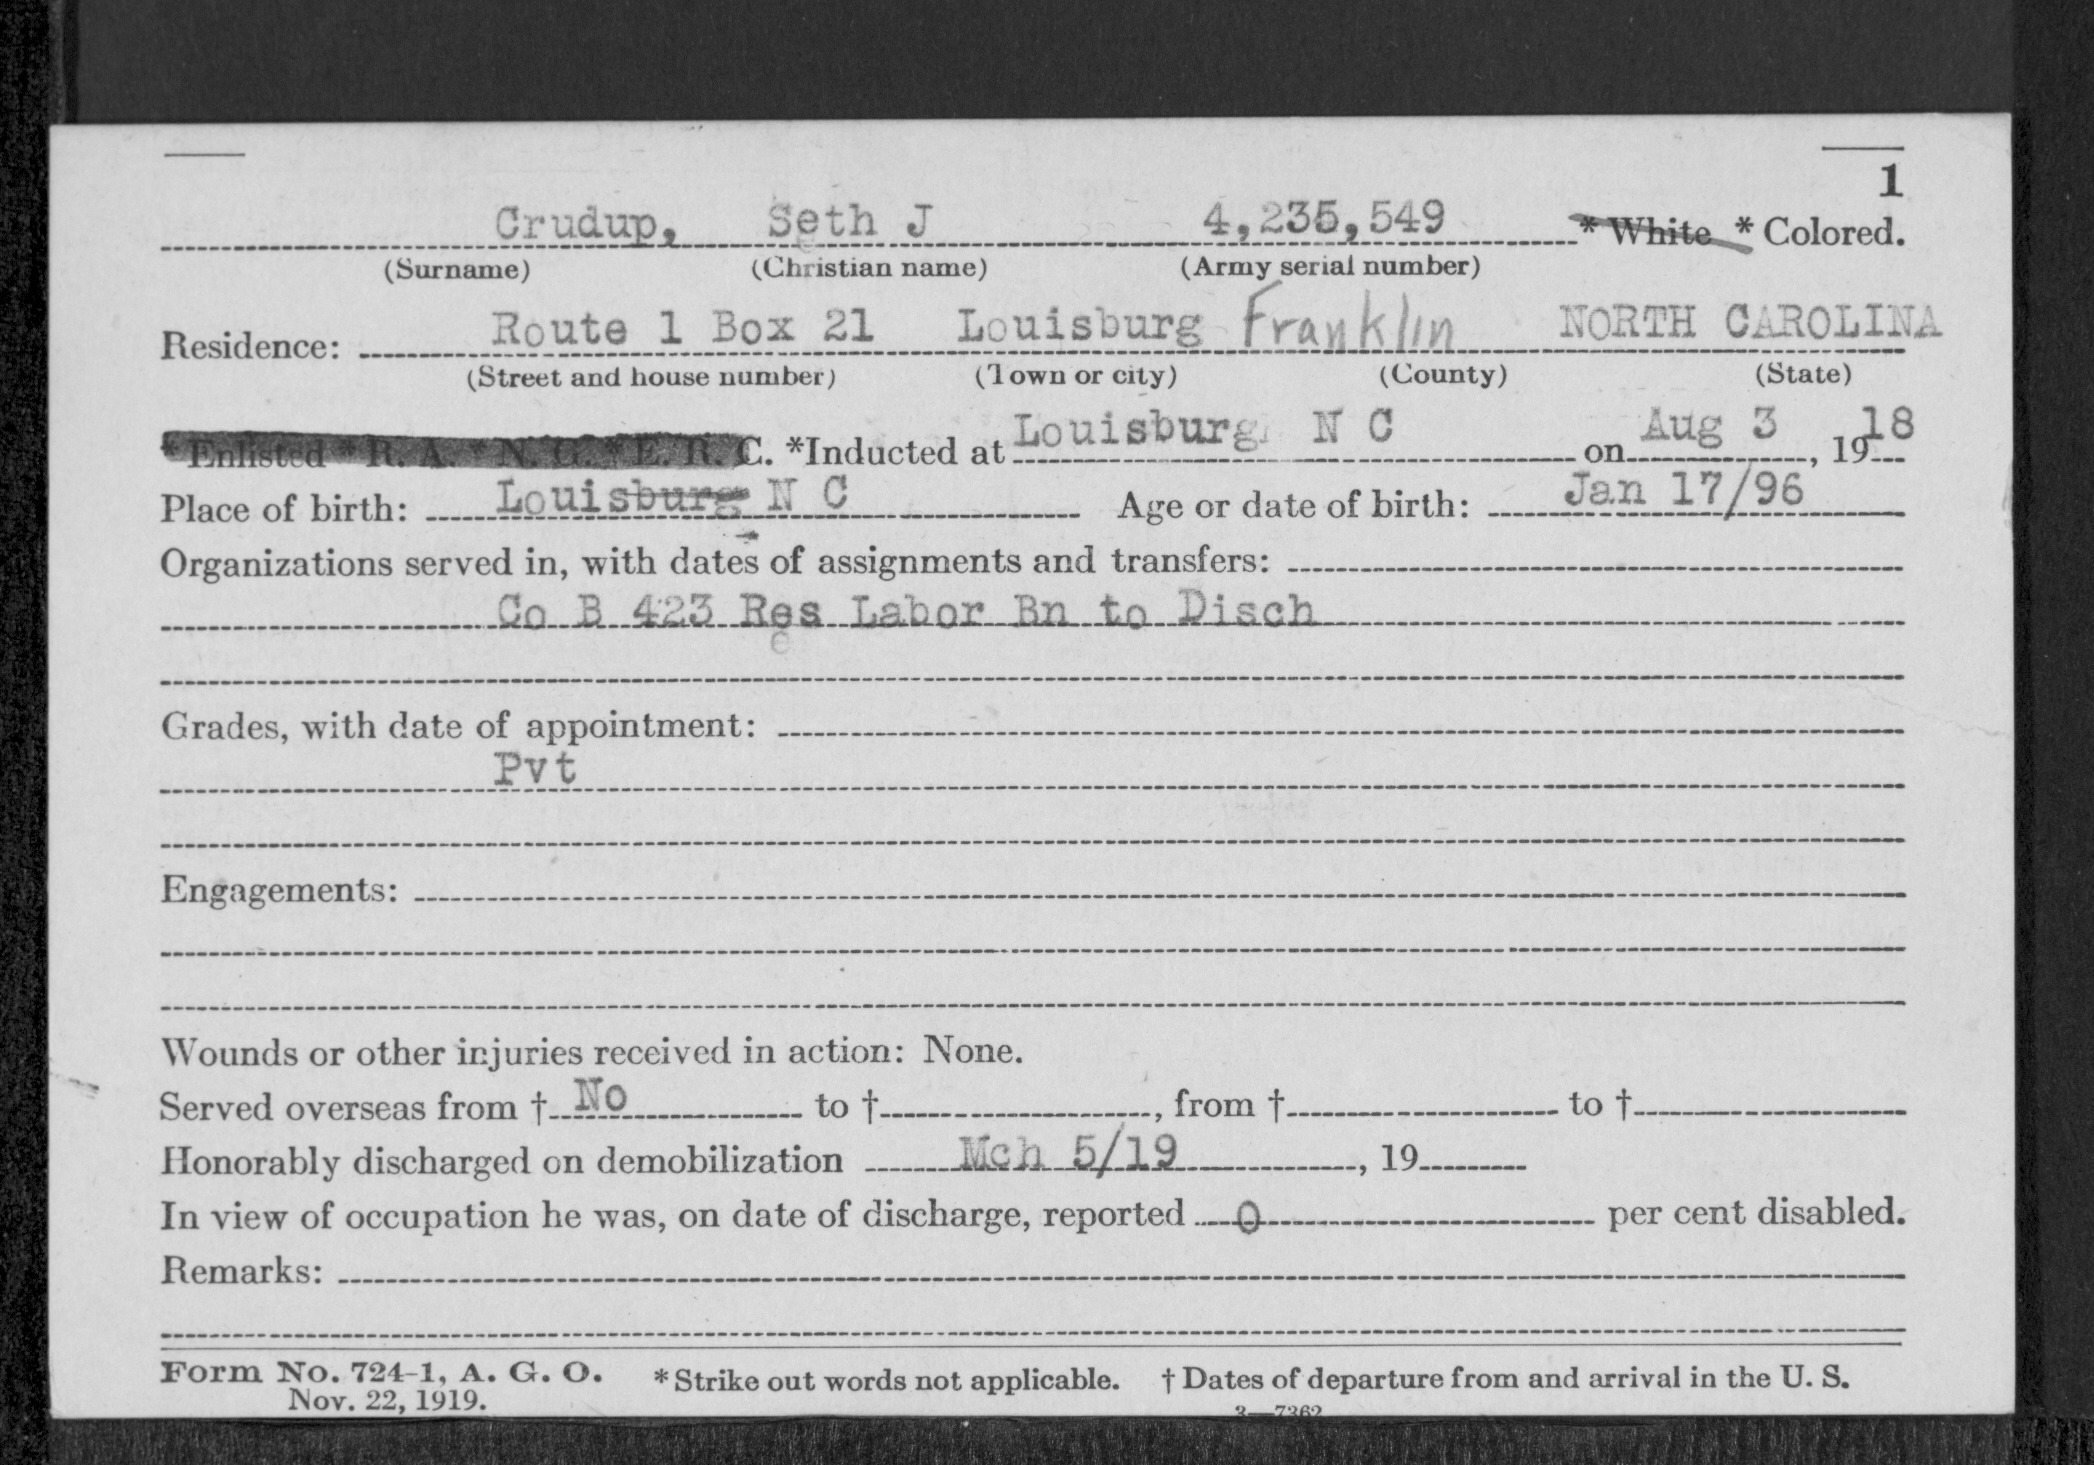 1
Crudup, Seth J 4,235,549 * White * Colored.
(Surname) (Christian name) (Army serial number)
Residence: Route 1 Box 21 Louisburg Franklin NORTH CAROLINA
(Street and house number) (Town or city) (County) (State)
*Enlisted *R. A. *N. G. *E. R. C. *Inducted at Louisburg N C on Aug 3, 1918
Place of birth: Louisburg N C Age or date of birth: Jan 17/96
Organizations served in, with dates of assignments and transfers:
Co B 423 Res Labor Bn to Disch
Grades, with date of appointment:
Pvt
Engagements:
Wounds or other injuries received in action: None.
Served overseas from † No to †, from † to †
Honorably discharged on demobilization Mch 5/19, 19
In view of occupation he was, on date of discharge, reported 0 per cent disabled.
Remarks:
Form No. 724-1, A. G. O. * Strike out words not applicable. † Dates of departure from and arrival in the U. S.
Nov. 22, 1919.
3—7362